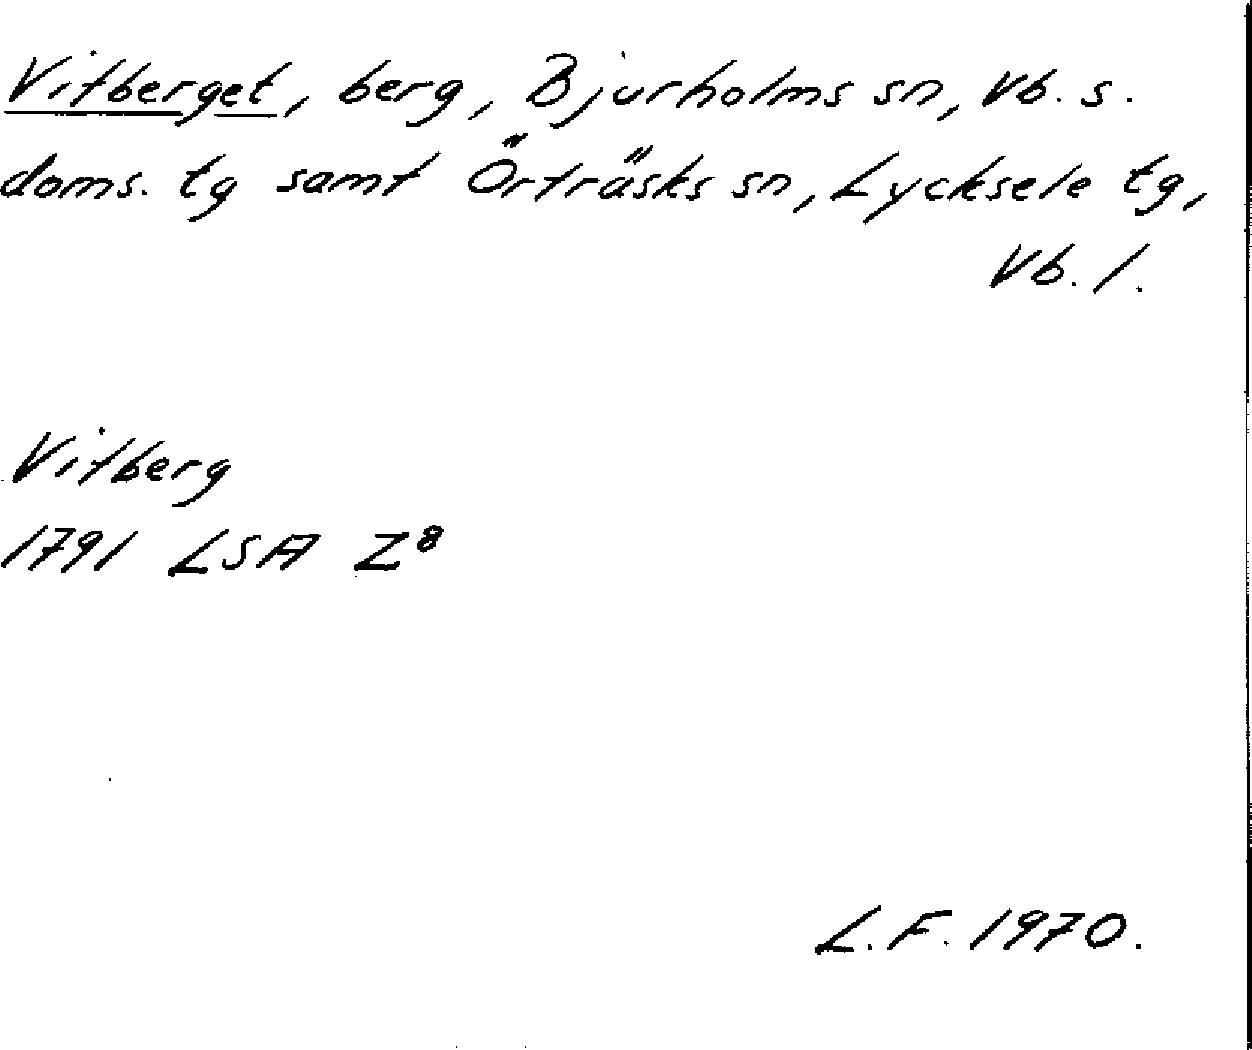 Vitberget, berg, Bjurholms sn, Vb. s.
doms. tg samt Örträsks sn, Lycksele tg,
Vb. l.
Vitberg
1791 LSA Z⁸
L.F. 1970.